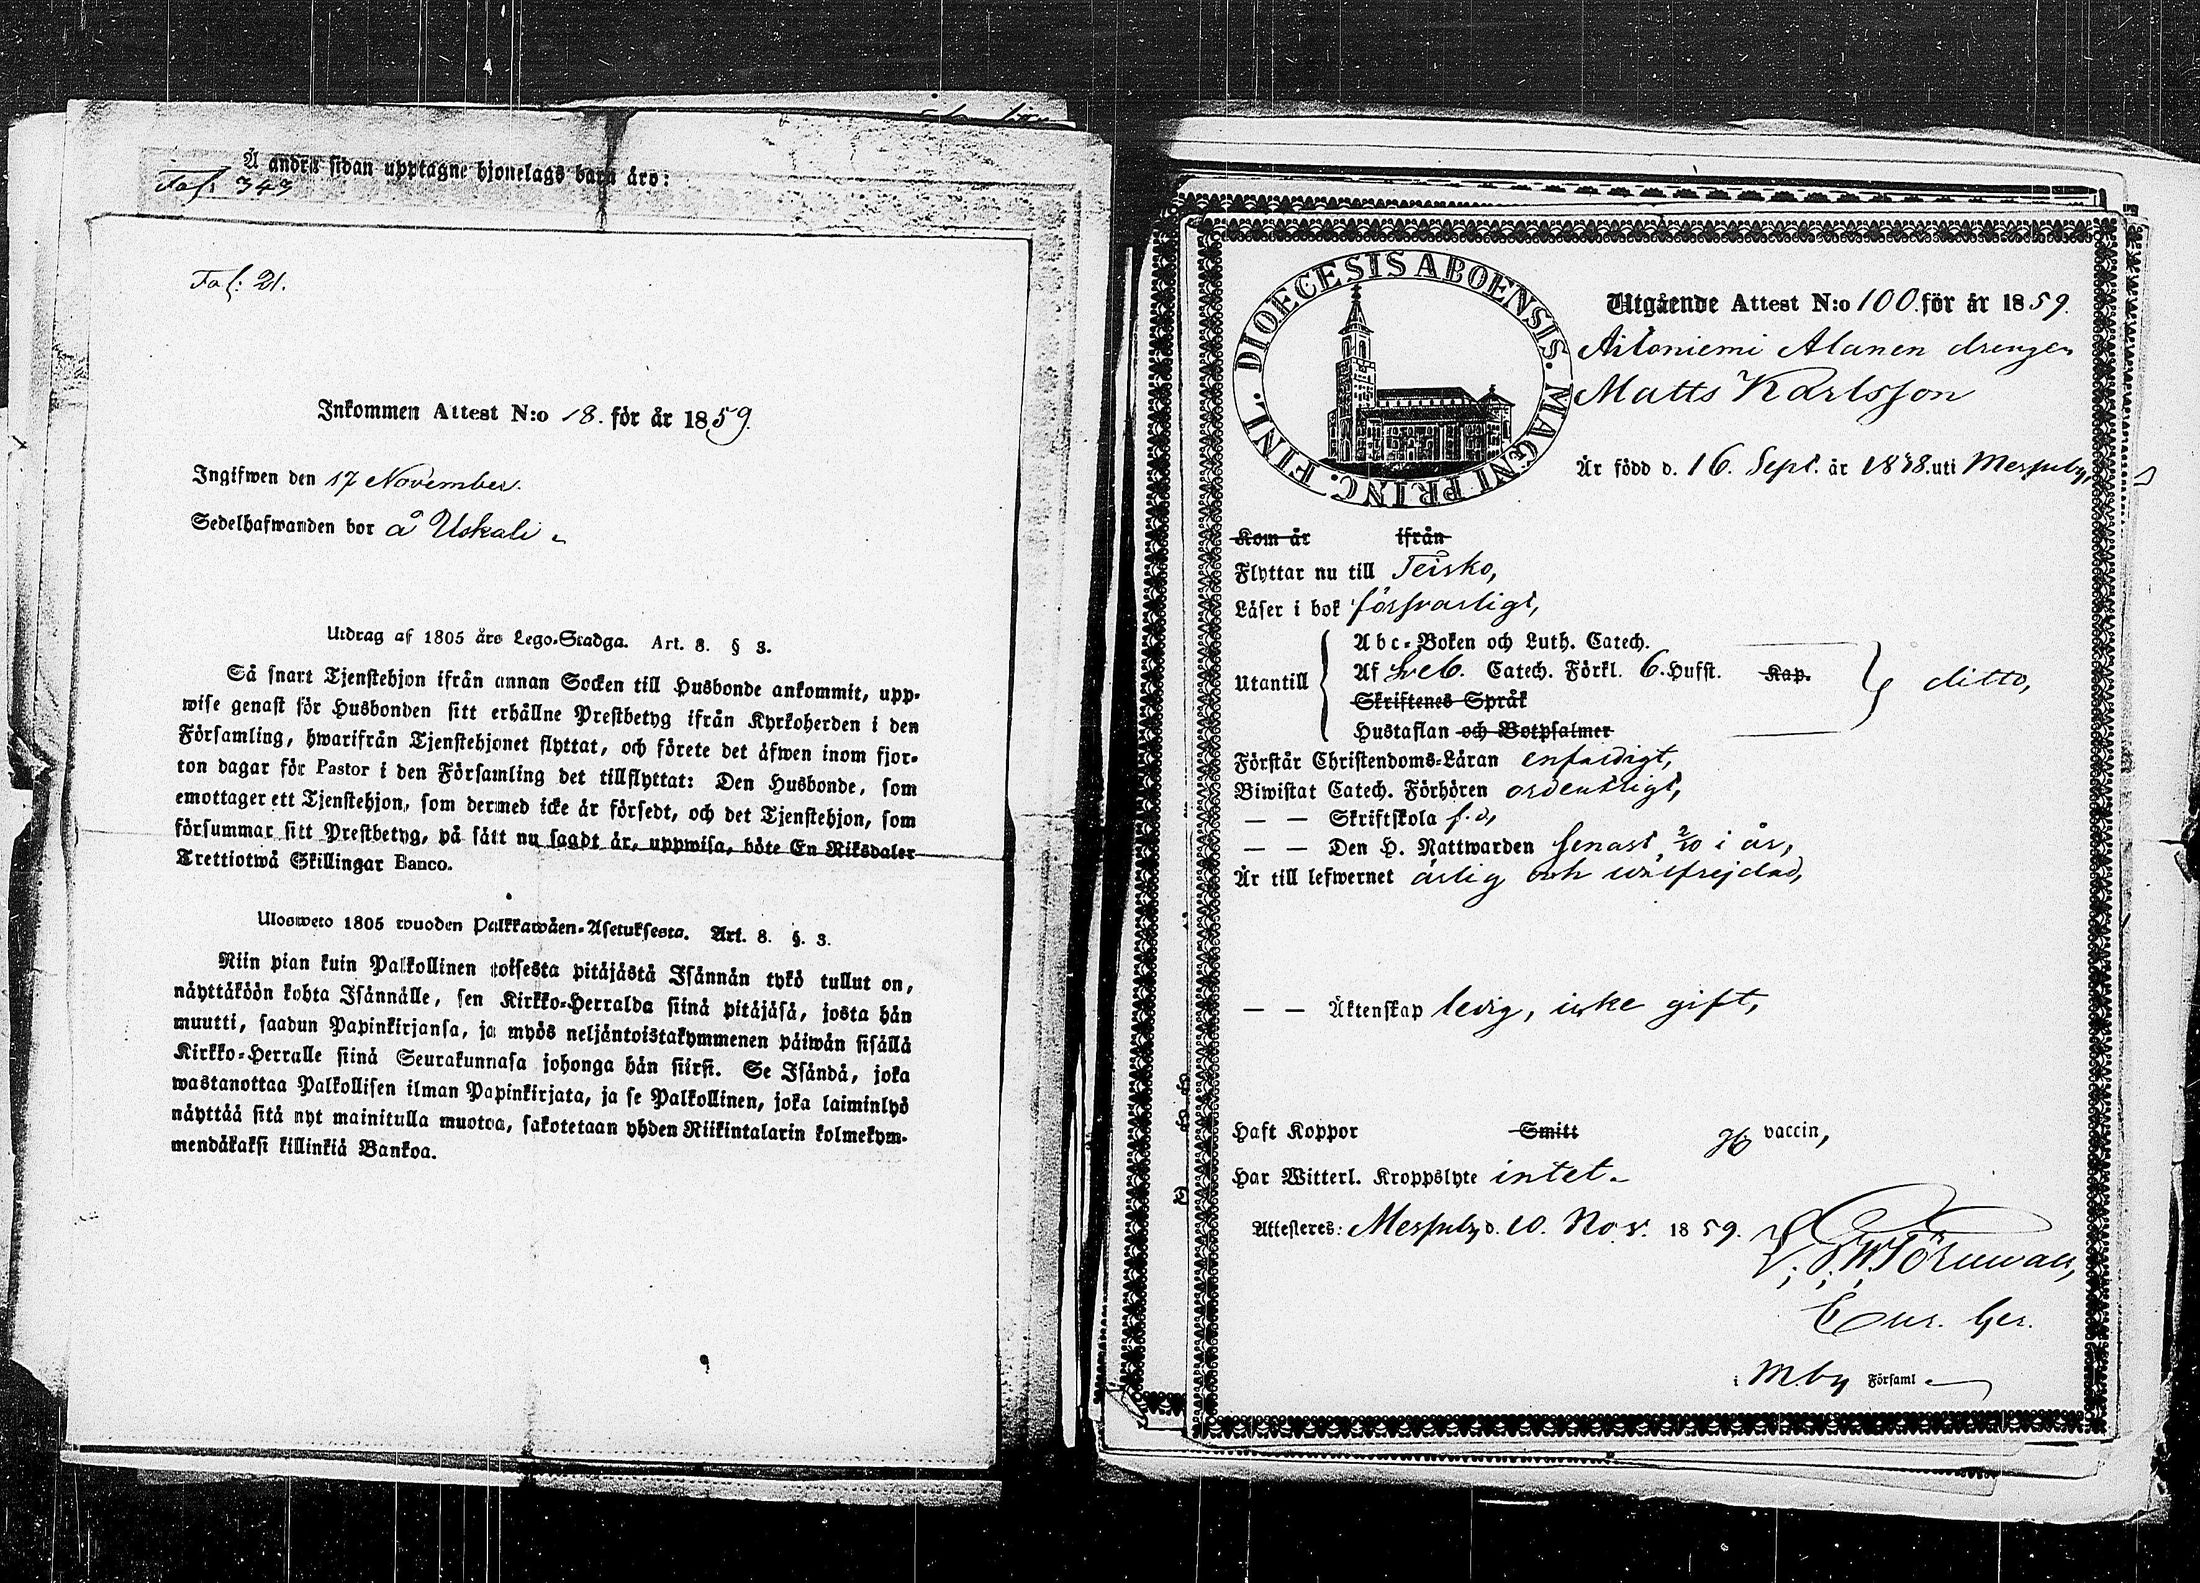 Å andra sidan upptagne hjonelags barn äro:
Fol: 343
Fol: 21.
Inkommen Attest N:o 18. för år 1859.
Ingifwen den 17 November.
Sedelhafwanden bor å Uskali
Utdrag af 1805 års Lego-Stadga. Art. 8. § 3.
Så snart Tjenstehjon ifrån annan Socken till Husbonde ankommit, upp-
wise genast för Husbonden sitt erhållne Prestbetyg ifrån Kyrkoherden i den
Församling, hwarifrån Tjenstehjonet flyttat, och förete det äfwen inom fjor-
ton dagar för Pastor i den Församling det tillflyttat: Den Husbonde, som
emottager ett Tjenstehjon, som dermed icke är försedt, och det Tjenstehjon, som
försummar sitt Prestbetyg, på sätt nu sagdt är, uppwisa, böte En Riksdaler
Trettiotwå Skillingar Banco.
Ulosweto 1805 wuoden Palkkawäen-Asetuksesta. Art. 8. §. 3.
Niin pian kuin Palkollinen toisesta pitäjästä Isännän tykö tullut on,
näyttäköön kohta Isännälle, sen Kirkko-Herralda siinä pitäjäsä, josta hän
muutti, saadun Papinkirjansa, ja myös neljäntoistakymmenen päiwän sisällä
Kirkko-Herralle siinä Seurakunnasa johonga hän siirsi. Se Isändä, joka
wastanottaa Palkollisen ilman Papinkirjata, ja se Palkollinen, joka laiminlyö
näyttää sitä nyt mainitulla muotoa, sakotetaan yhden Riikintalarin kolmekym-
mendäkaksi killinkiä Bankoa.
DIOECESIS ABOENSIS. MAGNI PRINC. FINL.
Utgående Attest N:o 100. för år 1859.
Aitoniemi Alanen drengen
Matts Karlsson
Är född d. 16. Sept. år 1838. uti Messuby,
Kom år ifrån
Flyttar nu till Teisko,
Läser i bok försvarligt,
Utantill
Abc-Boken och Luth. Catech.
Af Sveb. Catech. Förkl. 6. Hufst. Kap.
Skriftenes Språk
Hustaflan och Botpsalmer
ditto,
Förstår Christendoms-Läran enfaldigt,
Biwistat Catech. Förhören ordentligt,
— — Skriftskola f. d,
— — Den H. Nattwarden senast 2/10 i år,
Är till lefwernet ärlig och wälfrejdad,
— — Äktenskap ledig, icke gift,
Haft Koppor Smitt vaccin,
Har Witterl. Kroppslyte intet
Attesteres: Messuby d. 10. Nov. 1859.
Törnwall,
i M.by Församl